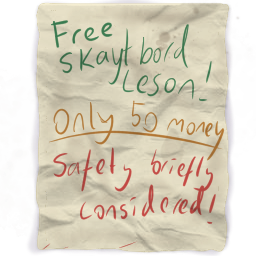 Free
Skayt bord
Leson!
Only 50 money
Safety briefly
considered!